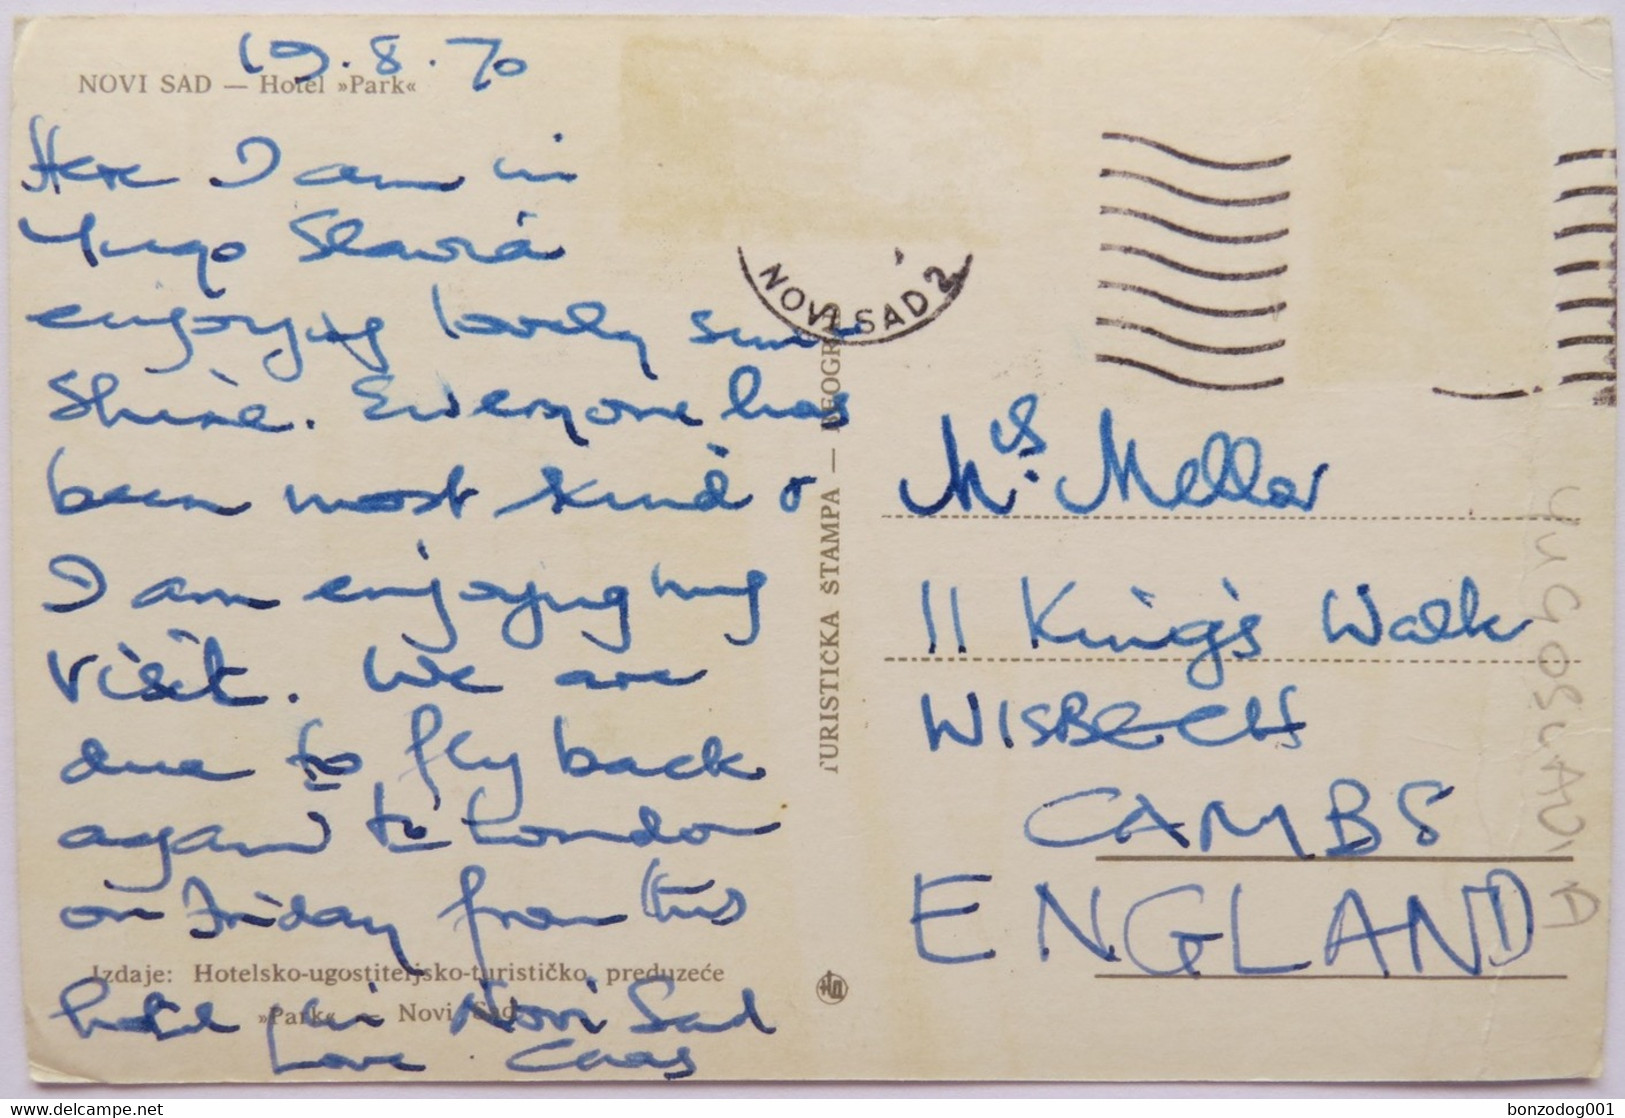 19.8.70
NOVI SAD — Hotel »Park«
Here I am in
Yugo Slavia
enjoying lovely sun
shine. Everyone has
been most kind &
I am enjoying my
visit. We are
due to fly back
again to London
on Friday from this
hotel in Novi Sad
Love
Izdaje: Hotelsko-ugostiteljsko-turističko preduzeće
»Park« — Novi Sad
TURISTIČKA ŠTAMPA — BEOGRAD
NOVI SAD 2
Mrs. Mellor
11 King's Walk
WISBECH
CAMBS
ENGLAND
YUGOSLAVIA
www.delcampe.net
bonzodog001